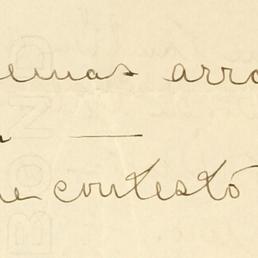 emas arro
—
e contestó